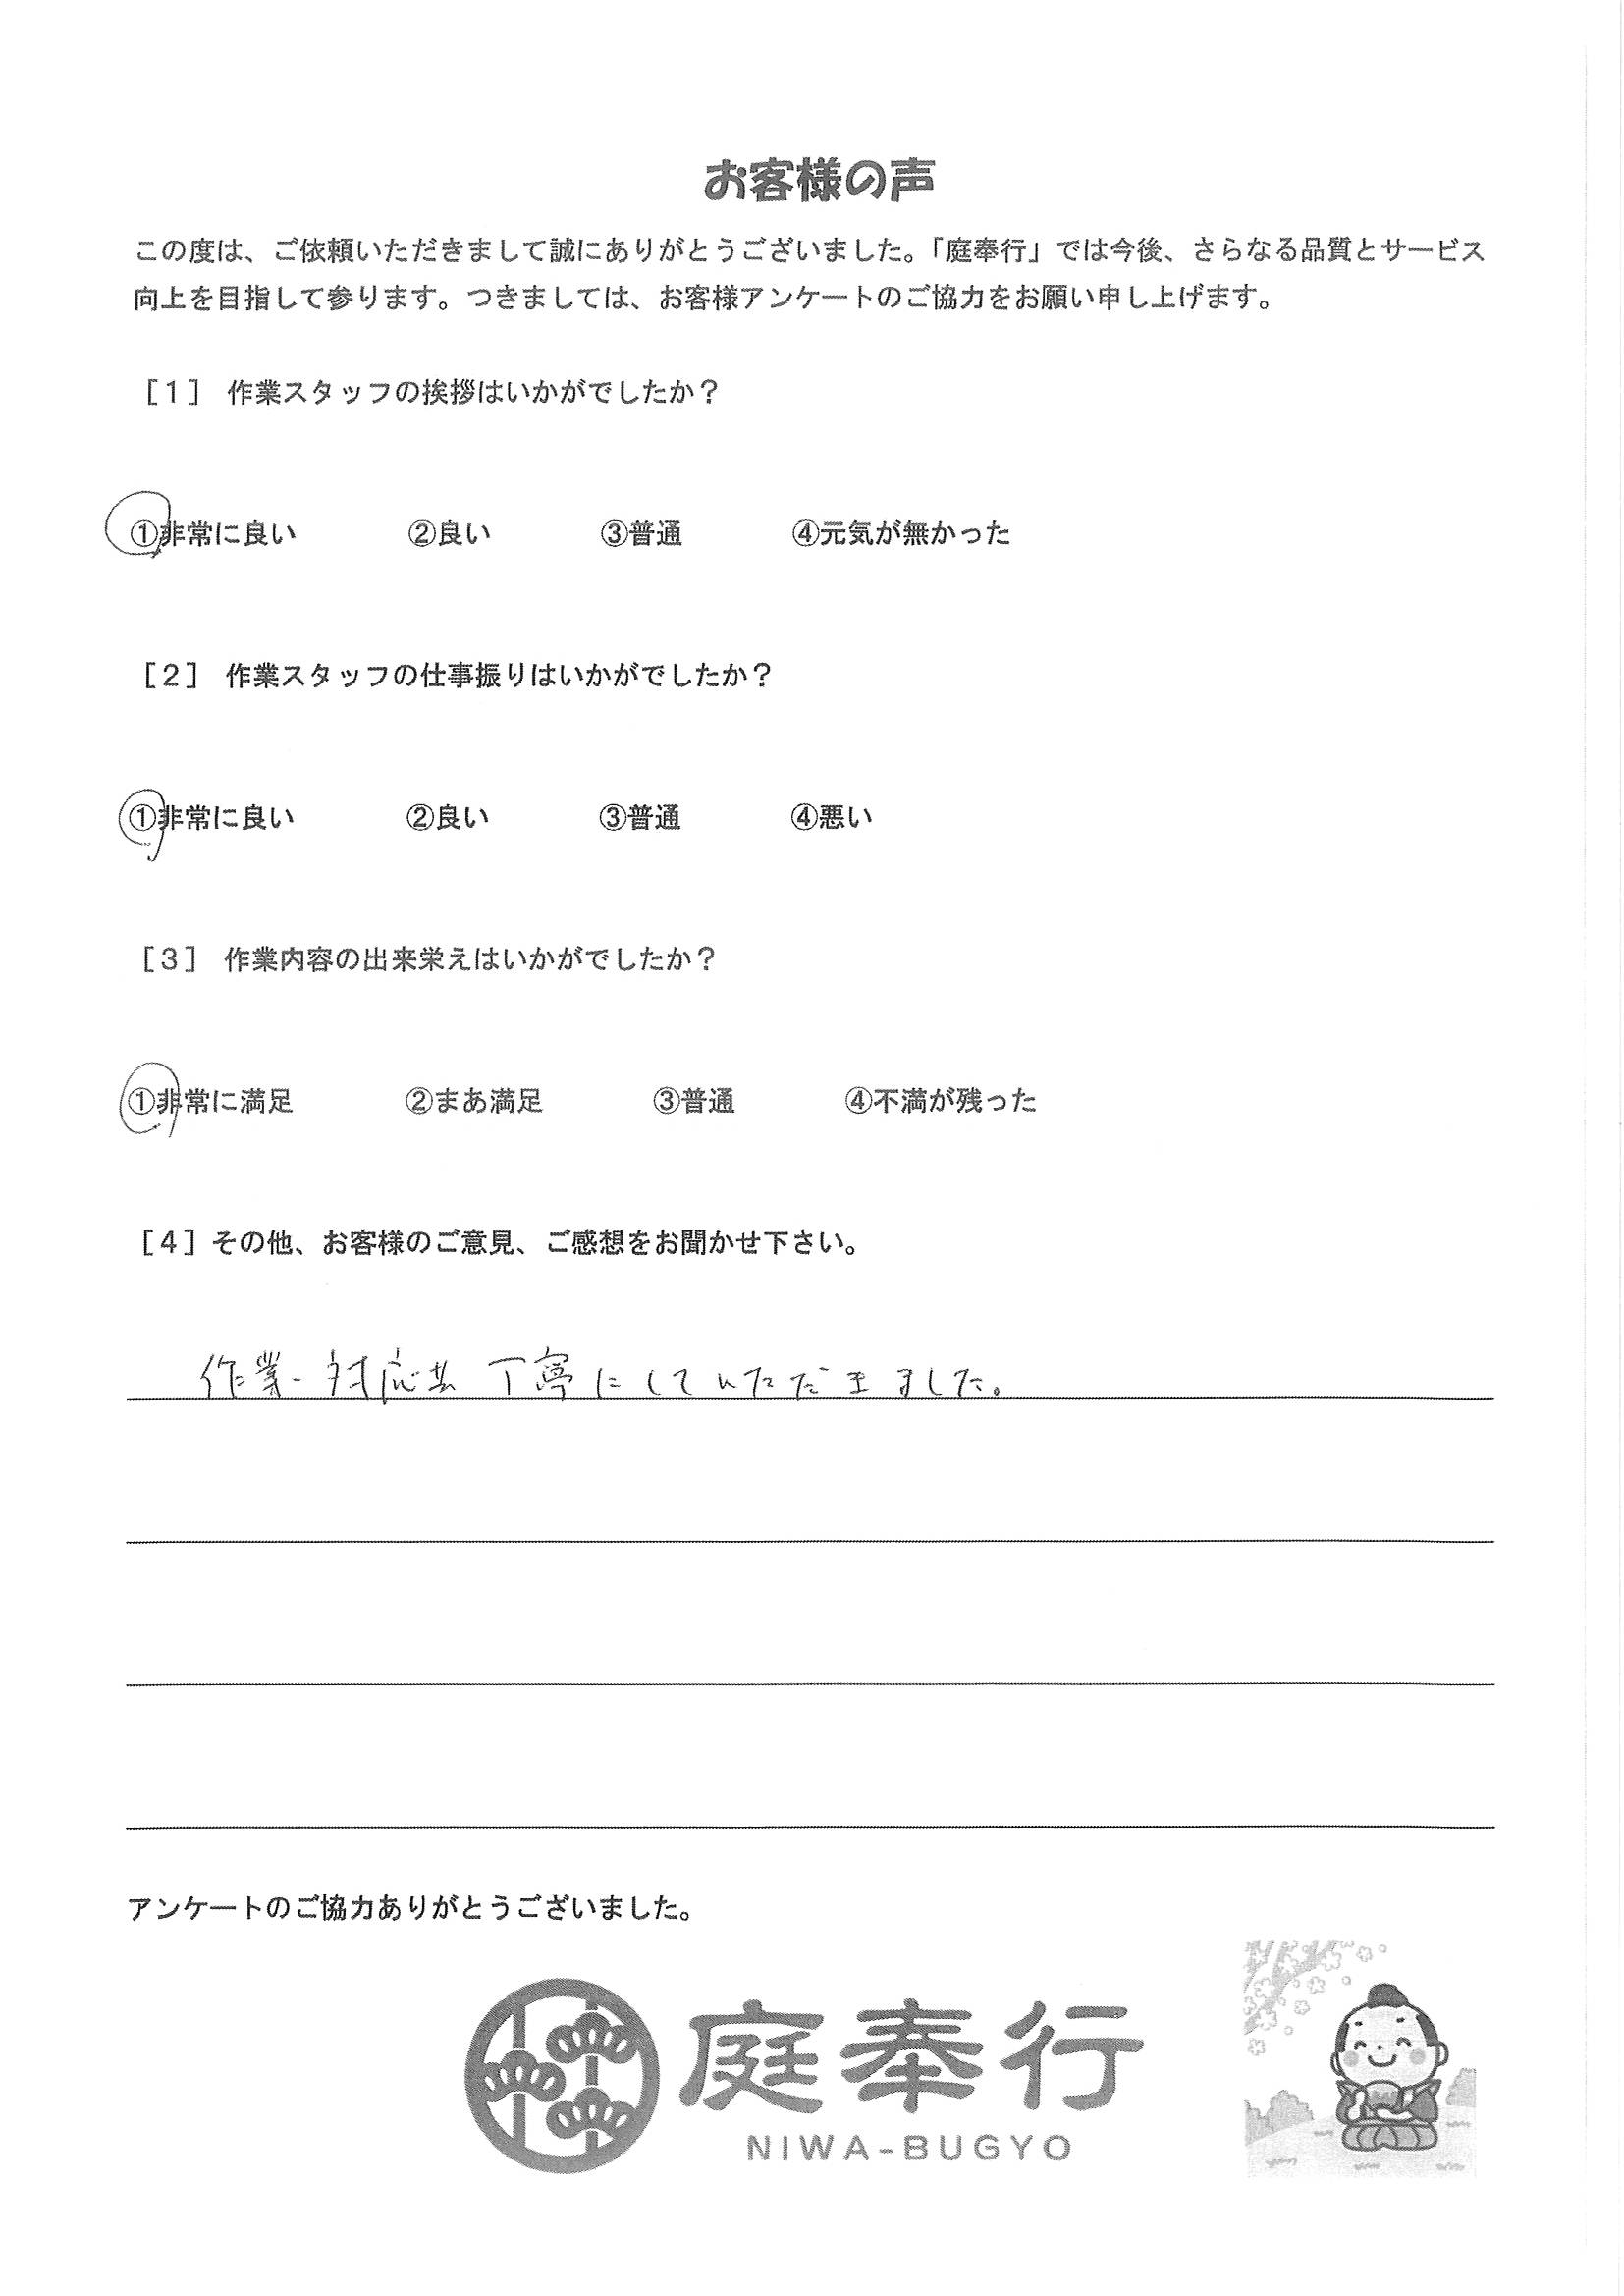 お客様の声
この度は、ご依頼いただきまして誠にありがとうございました。「庭奉行」では今後、さらなる品質とサービス
向上を目指して参ります。つきましては、お客様アンケートのご協力をお願い申し上げます。
［１］ 作業スタッフの挨拶はいかがでしたか？
①非常に良い ②良い ③普通 ④元気が無かった
［２］ 作業スタッフの仕事振りはいかがでしたか？
①非常に良い ②良い ③普通 ④悪い
［３］ 作業内容の出来栄えはいかがでしたか？
①非常に満足 ②まあ満足 ③普通 ④不満が残った
［４］その他、お客様のご意見、ご感想をお聞かせ下さい。
作業・対応共 丁寧にしていただきました。
アンケートのご協力ありがとうございました。
庭奉行
NIWA-BUGYO